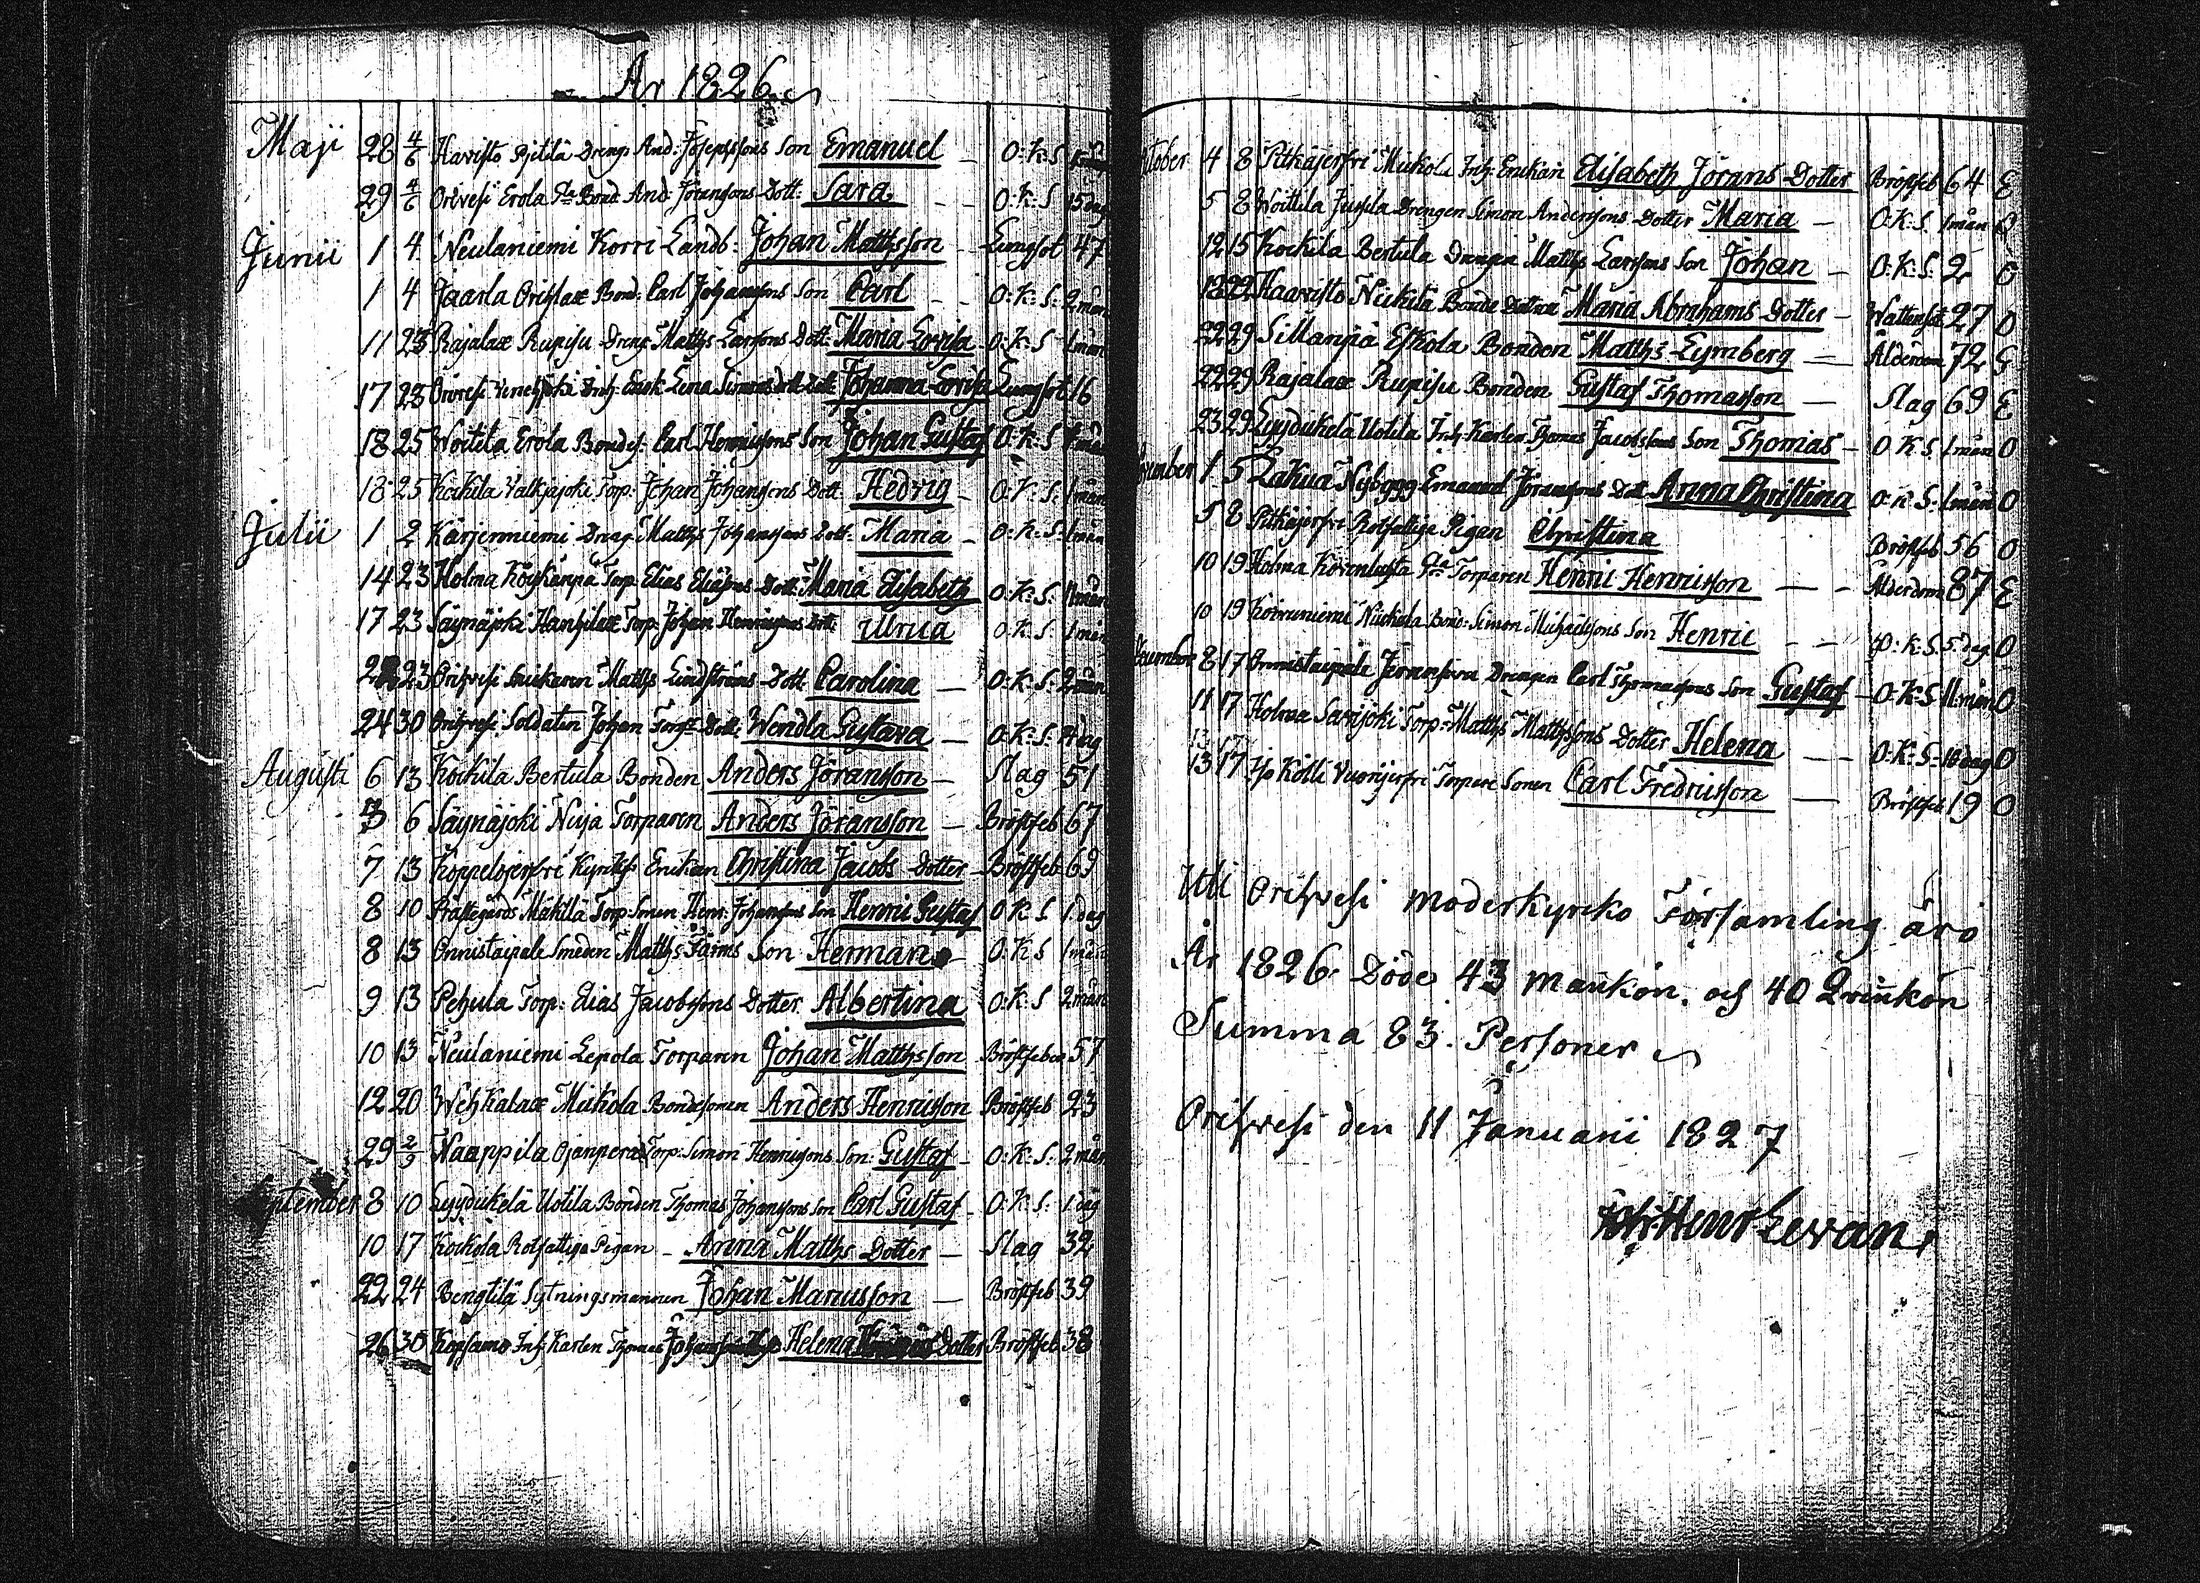 År 1826
Maji 28 4/6 Havisto Pjttilä Dreng: And: Josephssons Son Emanuel – O:K:S
29 4/6 Orivesi Erola Bond. And: Jöranssons Dott: Sara – – O:K:S 15 dag
Junii 1 4 Neulaniemi Korri Landb: Johan Matthsson – Lungsot 47
1 4 Jaarla Bond: Carl Johanssons Son Carl – O:K:S: 2 mån
11 25 Rajalax Rupisu Dreng Matths Larssons Dott: Maria Lovisa O:K:S 1 mån
17 28 Orivesi Inh: Lena Johanna Lovisa Lungsot 16
18 25 Woitila Erola Bondes: Carl Henrissons Son Johan Gustaf O:K:S
18 25 Kockila Valkjajoki Torp: Johan Johanssons Dott: Hedvig – O:K:S: 1 mån
Julii 1 2 Karjenniemi Dreng Matths Johanssons Dott: Maria – O:K:S: 1 mån
14 23 Holma Köykänpä Torp: Elias Eliæsons Dott: Maria Elisabeth O:K:S:
17 23 Säynäjoki Torp: Johan Henrissons Dott: Ulrica O:K:S 1 mån
23 Orihvesi Matths Lindströms Dott Carolina – O:K:S: 2 mån
24 30 Orihvesi Soldaten Johan Dott: Wendla Gustava – O:K:S: dag
Augusti 6 13 Kockila Bertula Bonden Anders Jöransson – Slag 51
3 6 Säynäjoki Neja Torparen Anders Jöransson – Bröstfeb 67
7 13 Koppelojerfvi Kyrkh: Enckan Christina Jacobs Dotter – Bröstfeb 69
8 10 Prästegårds Mäkilä Torp: Henr: Johanssons Son Henric Gustaf O K S 1 dag
8 13 Onnistaipale Smeden Matths Färms Son Herman – O:K:S 1 mån
9 13 Pehula Torp: Elias Jacobssons Dotter Albertina O:K:S 2 mån
10 13 Neulaniemi Lepola Torparen Johan Matthsson Bröstfeber 57
12 20 Wehkalax Mickola Bondesonen Anders Henrisson Bröstfeb 23
29 2/9 Waappila Ojanperä Torp: Simon Henrissons Son: Gustaf – O:K:S: 2 mån
September 8 10 Lyydickelä Uotila Bonden Thomas Johanssons Son Carl Gustaf – O:K:S: 1 dag
10 17 Kockola Rotfattiga Pigan – Anna Matths Dotter – Slag 32
22 24 Bengtilä Sytningsmannen Johan Manusson – Bröstfeb 39
26 30 Kopsamo Inh: Karlen Thomas Helena Dotter Bröstfeb 38
October 4 8 Pitkäjerfvi Mickola Inh: Enckan Elisabeth Jörans Dotter Bröstfeb 64 E
5 8 Woittila Jussila Drengen Simon Anderssons Dotter Maria – O.K.S. 1 mån O
12 15 Kockila Bertula Drengen Matths Larssons Son Johan – O:K:S: 2 O
18 22 Haavisto Nickilä Bonde Dottren Maria Abrahams Dotter – Wattensot 27 O
22 29 Sillanpää Eskola Bonden Matths Lymberg – Ålderdom 72 G
22 29 Rajalax Rupisu Bonden Gustaf Thomasson – Slag 69 E
23 29 Lyydickelä Uotila Inh: Karlen Thomas Jacobssons Son Thomas – O K S. 1 mån O
November 1 5 Lakua Nybygg: Emanuel Jöranssons Dott Anna Christina O:K:S: 1 mån O
5 8 Pitkäjerfvi Rotfattiga Pigan Christina Bröstfeb 56 O
10 19 Holma Torparen Henric Henrisson – – Ålderdom 87 E
10 19 Koivuniemi Nickola Bond: Simon Michaelssons Son Henric – – O:K:S. 5 dag O
December 8 17 Onnistaipale Drengen Carl Thomassons Son Gustaf – O:K:S 11 mån O
11 17 Holma Savijoki Torp: Matths Matthssons Dotter Helena – – O:K:S: 10 dag O
13 17 Kolli Vuorijerfvi Torpare Sonen Carl Fredrisson – Bröstfeb 19 O
Uti Orihvesi moderkyrko Församling äro
År 1826 Döde 43 mankön. och 40 Qvinkön
Summa 83. Personer
Orihvesi den 11 Januarii 1827
Henr Levan